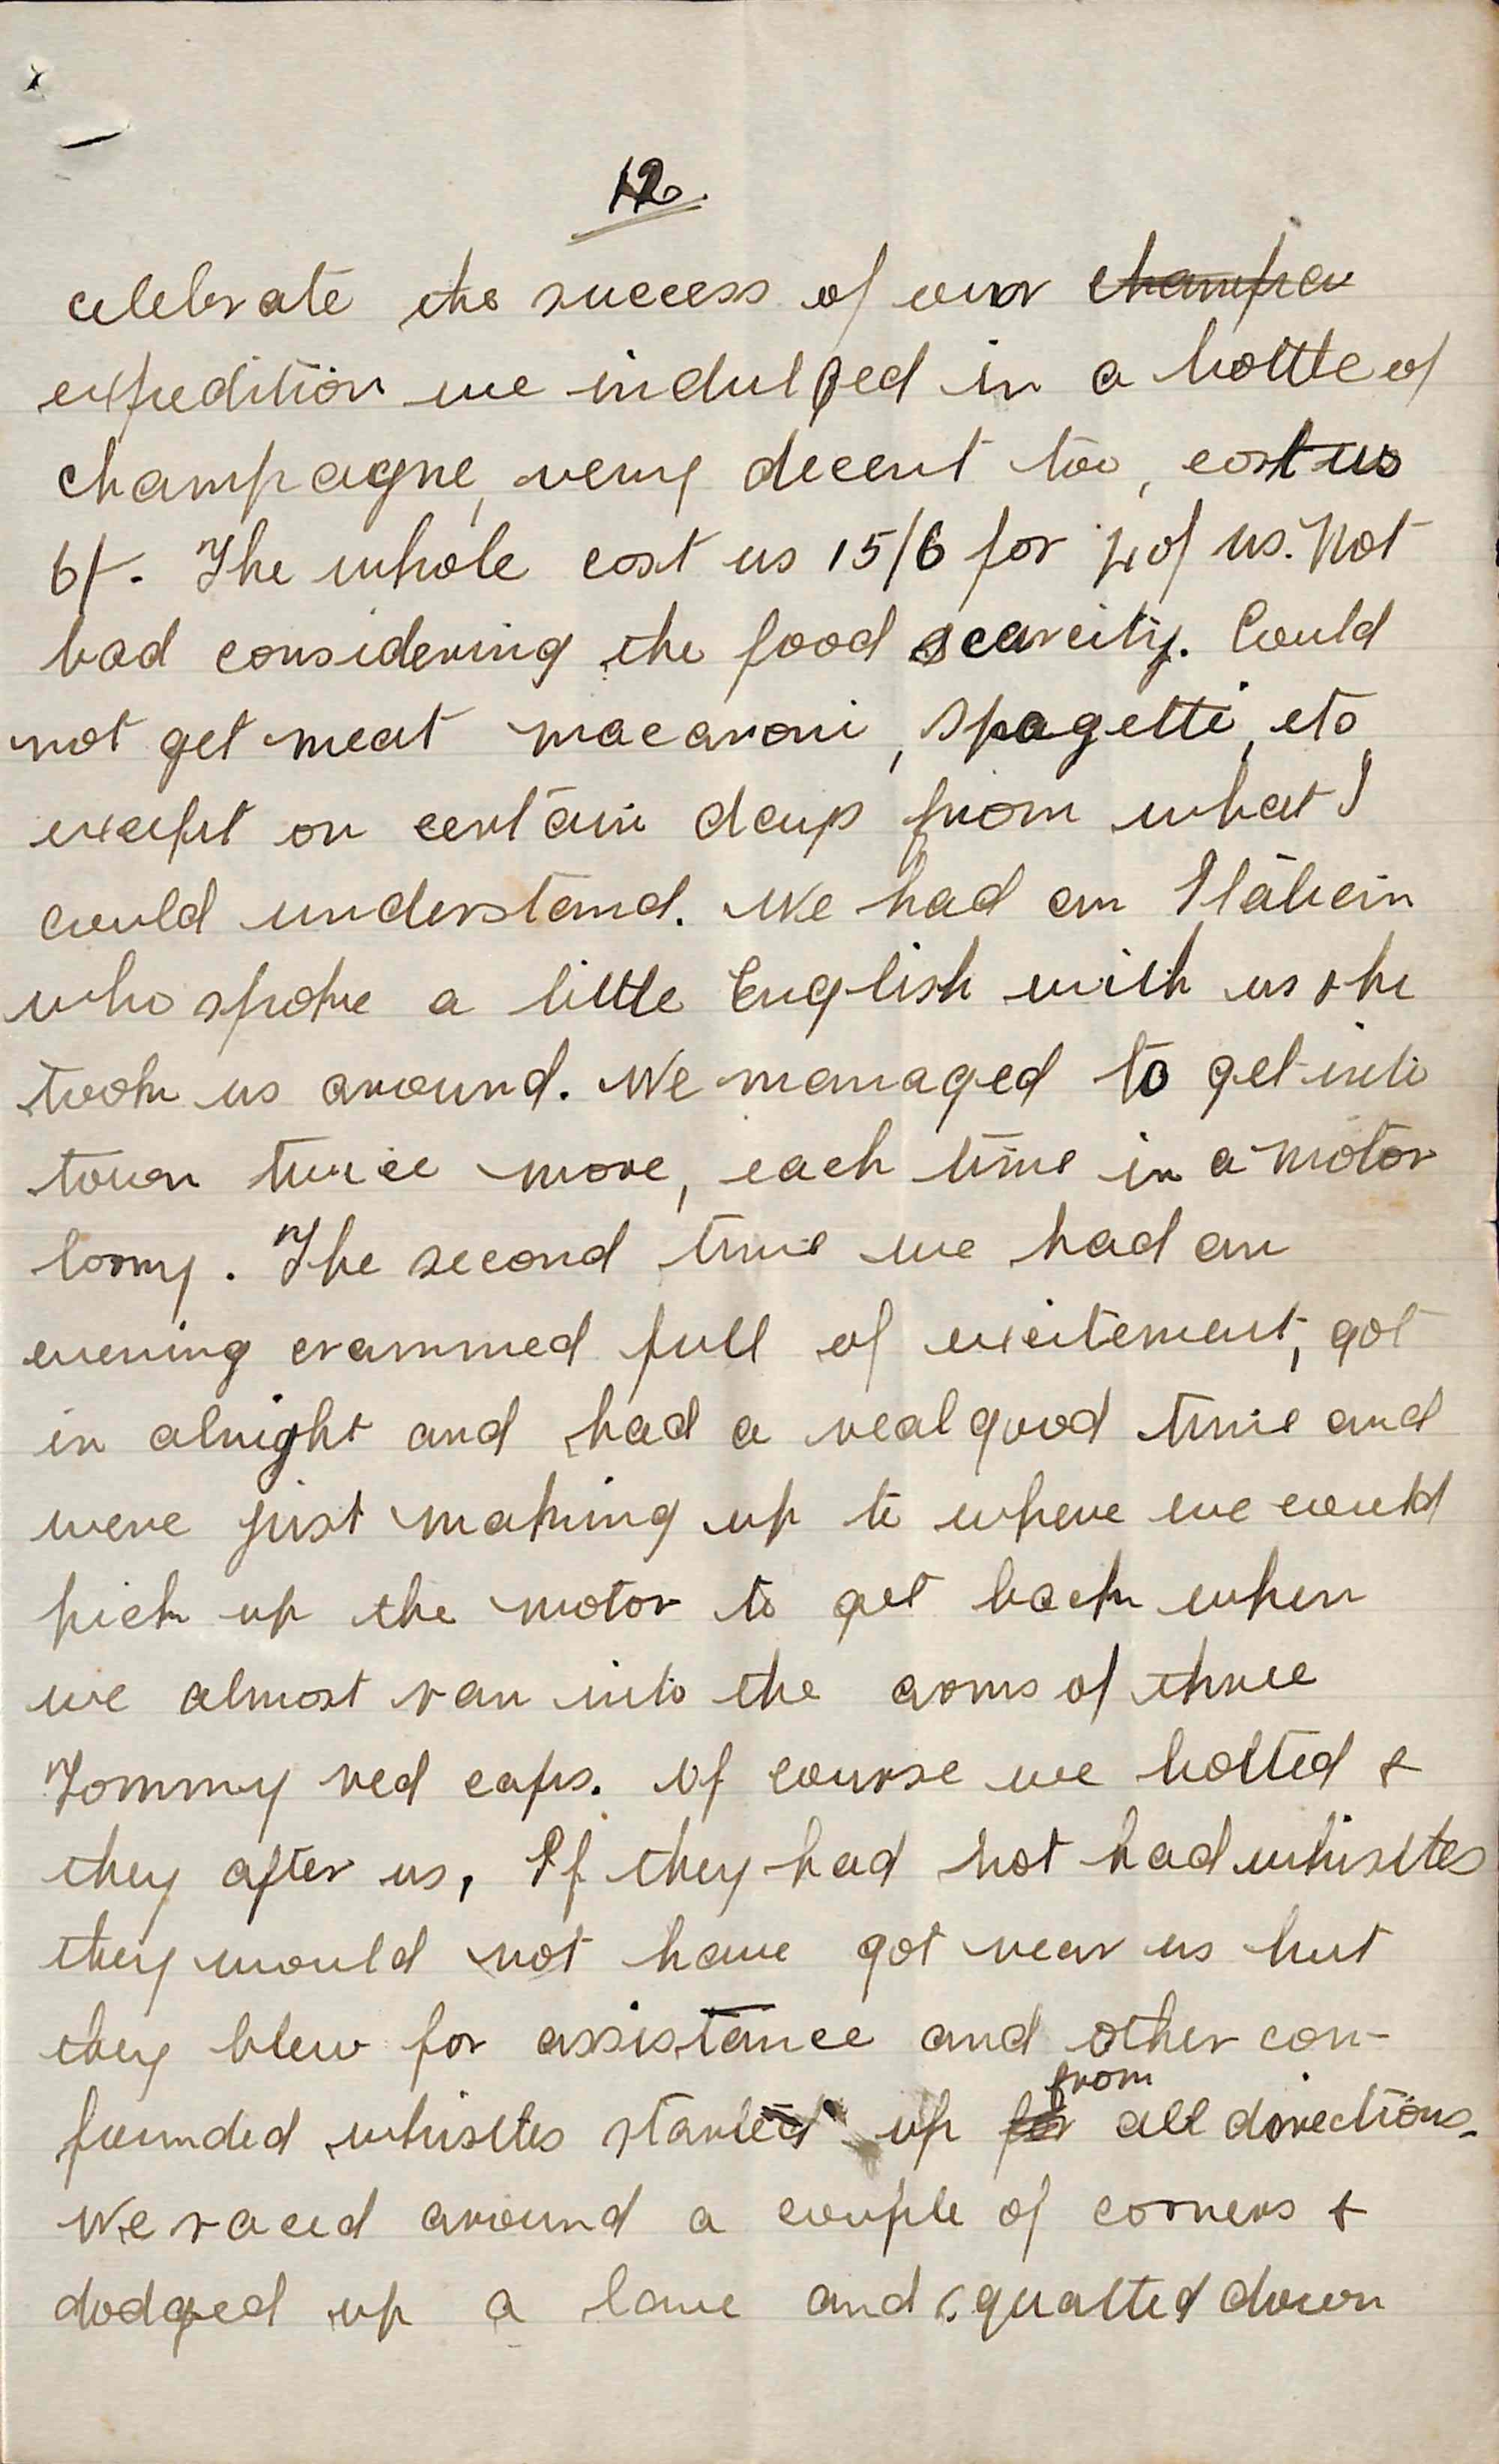 12.
celebrate the success of our champa
expedition we indulged in a bottle of
champagne, very decent too, cost us
6/-. The whole cost us 15/6 for 4 of us. Not
bad considering the food scarcity. Could
not get meat macaroni, spagetti, etc
except on certain days from what I
could understand. We had an Italian
who spoke a little English with us & he
took us around. We managed to get into
town twice more, each time in a motor
lorry. The second time we had an
evening crammed full of excitement, got
in alright and had a real good time and
were just making up to where we could
pick up the motor to get back when
we almost ran into the arms of three
Tommy red caps. Of course we bolted &
they after us, If they had not had whisltes
they would not have got near us but
they blew for assistance and other con-
founded whisltes started up for from all directions.
We raced around a couple of corners &
dodged up a lane and squatted down